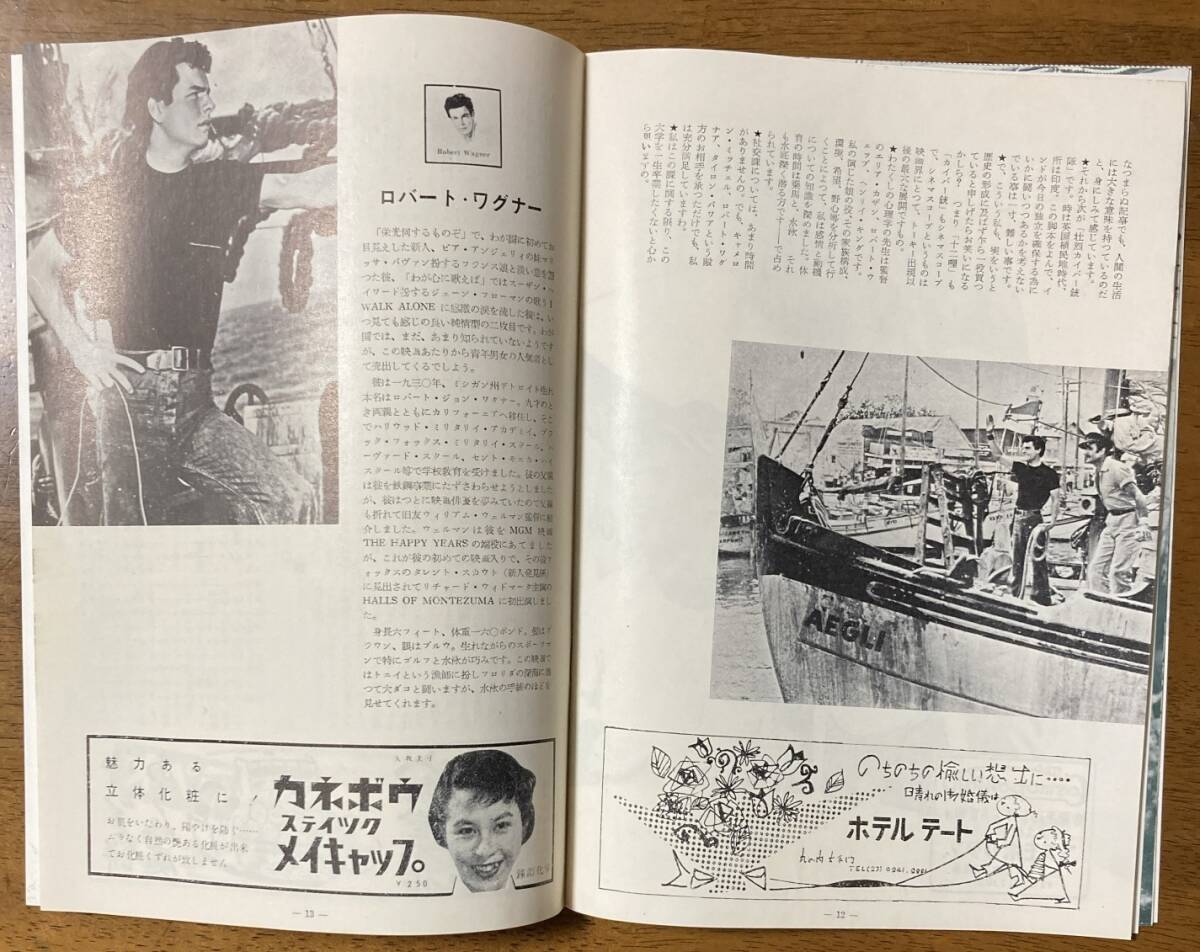 なつまらぬ記事でも、人間の生活
には大きな意味を持つているのだ
と、身にしみて感じています。
★それから次が「壮烈カイバー銃
隊」です。時は英国植民地時代、
所は印度。この脚本をよんで、イ
ンドが今日の独立を確保する為に
いかに闘いつつあるかを考えない
でいる事は一寸、難しい事です。
★で、こういう私も、実をいうと
歴史の形成に及ばず乍ら一役買つ
ていると申しげたらお笑いになる
かしら？　つまり「十二哩」も
「カイバー銃」もシネマスコープ
で、シネマスコープというものは
映画界にとつて、トーキー出現以
後の最大な展開ですもの。
★わたくしの心理学の先生は監督
のエリア・カザン、ロバート・ウ
エッブ、ヘンリイ・キングです。
私の演じた娘の役、その家族構成、
環境、希望、野心等を分析して行
くことによつて、私は感情と動機
についての知識を深めました。体
育の時間は乗馬と、水泳　それ
も水底深く潜る方です――で占め
られています。
★社交課については、あまり時間
がありませんの。でも、キャメロ
ン・ミッチェル、ロバート・ワグ
ナア、タイロン・パワアという殿
方のお相手を承つただけでも、私
は充分満足していますわ。
★私はこの課に関する限り、この
大学を一生卒業したくないと心か
ら思います の。
AEGLI
のちのちの愉しい想出に‥‥
晴れの御婚儀は
ホテル テート
TEL(23)
― 12 ―
Robert Wagner
ロバート・ワグナー
「栄光何するものぞ」で、わが国に初めてお
目見えした新人、ピア・アンジェリイの妹マリ
ッサ・パヴァン扮するフランス娘と淡い恋を語
つた彼、「わが心に歌えば」ではスーザン・ヘ
イワード扮するジェーン・フローマンの歌う I
WALK ALONE に感激の涙を流した彼は、い
つ見ても感じの良い純情型の二枚目です。わが
国では、まだ、あまり知られていないようです
が、この映画あたりから青年男女の人気者とし
て売出してくるでしよう。
彼は一九三〇年、ミシガン州デトロイト生れ
本名はロバート・ジョン・ワグナー。九才のと
き両親とともにカリフォーニアへ移住し、そこ
でハリウッド・ミリタリイ・アカデミイ、ブラ
ック・フォックス・ミリタリイ・スクール、ハ
ーヴァード・スクール、セント・モニカ・ハイ
スクール等で学校教育を受けました。彼の父親
は彼を鉄鋼事業にたずさわらせようとしました
が、彼はつとに映画俳優を夢みていたので父親
も折れて旧友ウィリアム・ウェルマン監督に紹
介しました。ウェルマンは彼をMGM映画
THE HAPPY YEARS の端役にあてました
が、これが彼の初めての映画入りで、その後フ
ォックスのタレント・スカウト（新人発見係）
に見出されてリチャード・ウィドマーク主演の
HALLS OF MONTEZUMA に初出演しまし
た。
身長六フィート、体重一六〇ポンド。髪はブ
ラウン、眼はブルウ。生れながらのスポーツマ
ンで特にゴルフと水泳が巧みです。この映画で
はトニイという漁師に扮しフロリダの深海に潜
つて大ダコと闘いますが、水泳の手練のほどを
見せてくれます。
魅力ある
立体化粧に！
お肌をいたわり、陽やけを防ぐ……
ムラなく自然の艶ある化粧が出来
てお化粧くずれが致しません
カネボウ
ステイツク
メイキャップ。
￥250
― 13 ―